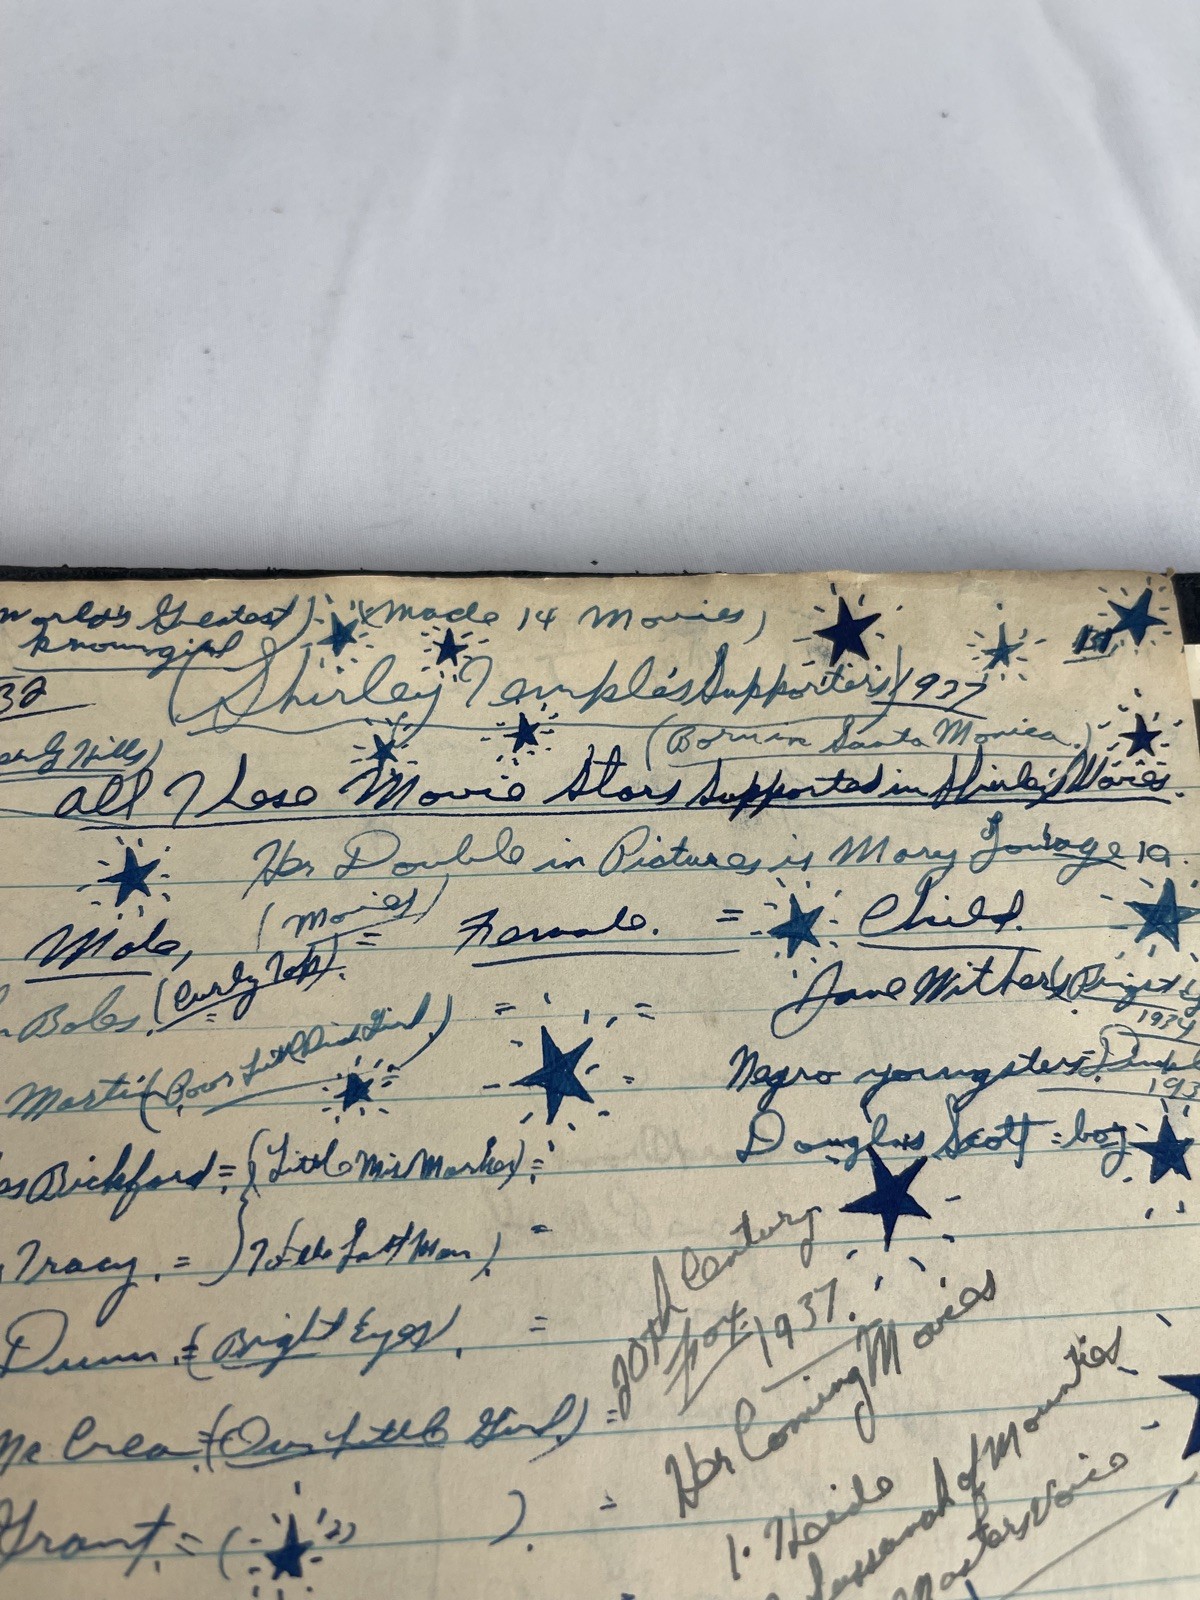 World's Greatest) (Made 14 Movies)
known girl
32 (Shirley Temple's Supporters) 1937
Hills) (Born in Santa Monica.)
All These Movie Stars Supported in Shirley's Movies.
Her Double in Pictures is Mary Lou age 10.
Male, (Movies) = Female. = Child.
Boles, (Curly Top). = = Jane Withers (
1934
Martin (Poor Little Rich Girl) Negro youngsters =
193
Bickford = (Little Mis Marker) = Douglas Scott = boy
Tracy. = (To the Last Man). =
Dunn. = (Bright Eyes). =
Mc Crea. = (Our Little Girl.) =
Grant. = ( ). =
20th Century
Fox. 1937.
Her Coming Movies
1. Heide
Sussanah of Mounties
Masters voice